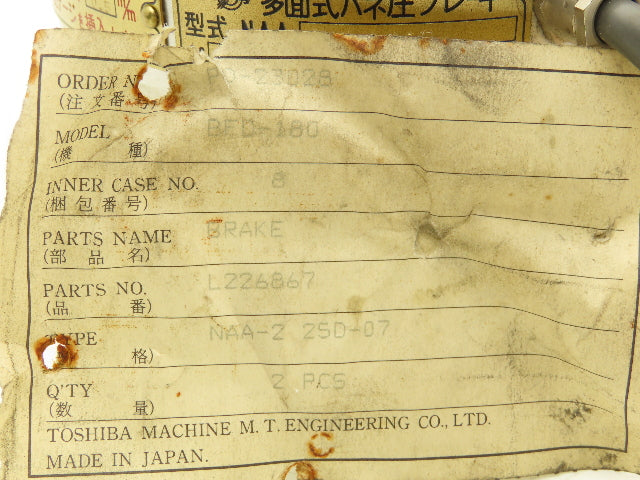 多面式バネ圧ブレーキ
型式 NAA
ORDER N
PO-23028
(注文番号)
MODEL BED-180
(機 種)
INNER CASE NO. 8
(梱包番号)
PARTS NAME BRAKE
(部品名)
PARTS NO. L226867
(品 番)
TYPE NAA-2 2SD-07
格)
Q'TY 2 PCS
(数 量)
TOSHIBA MACHINE M. T. ENGINEERING CO., LTD.
MADE IN JAPAN.